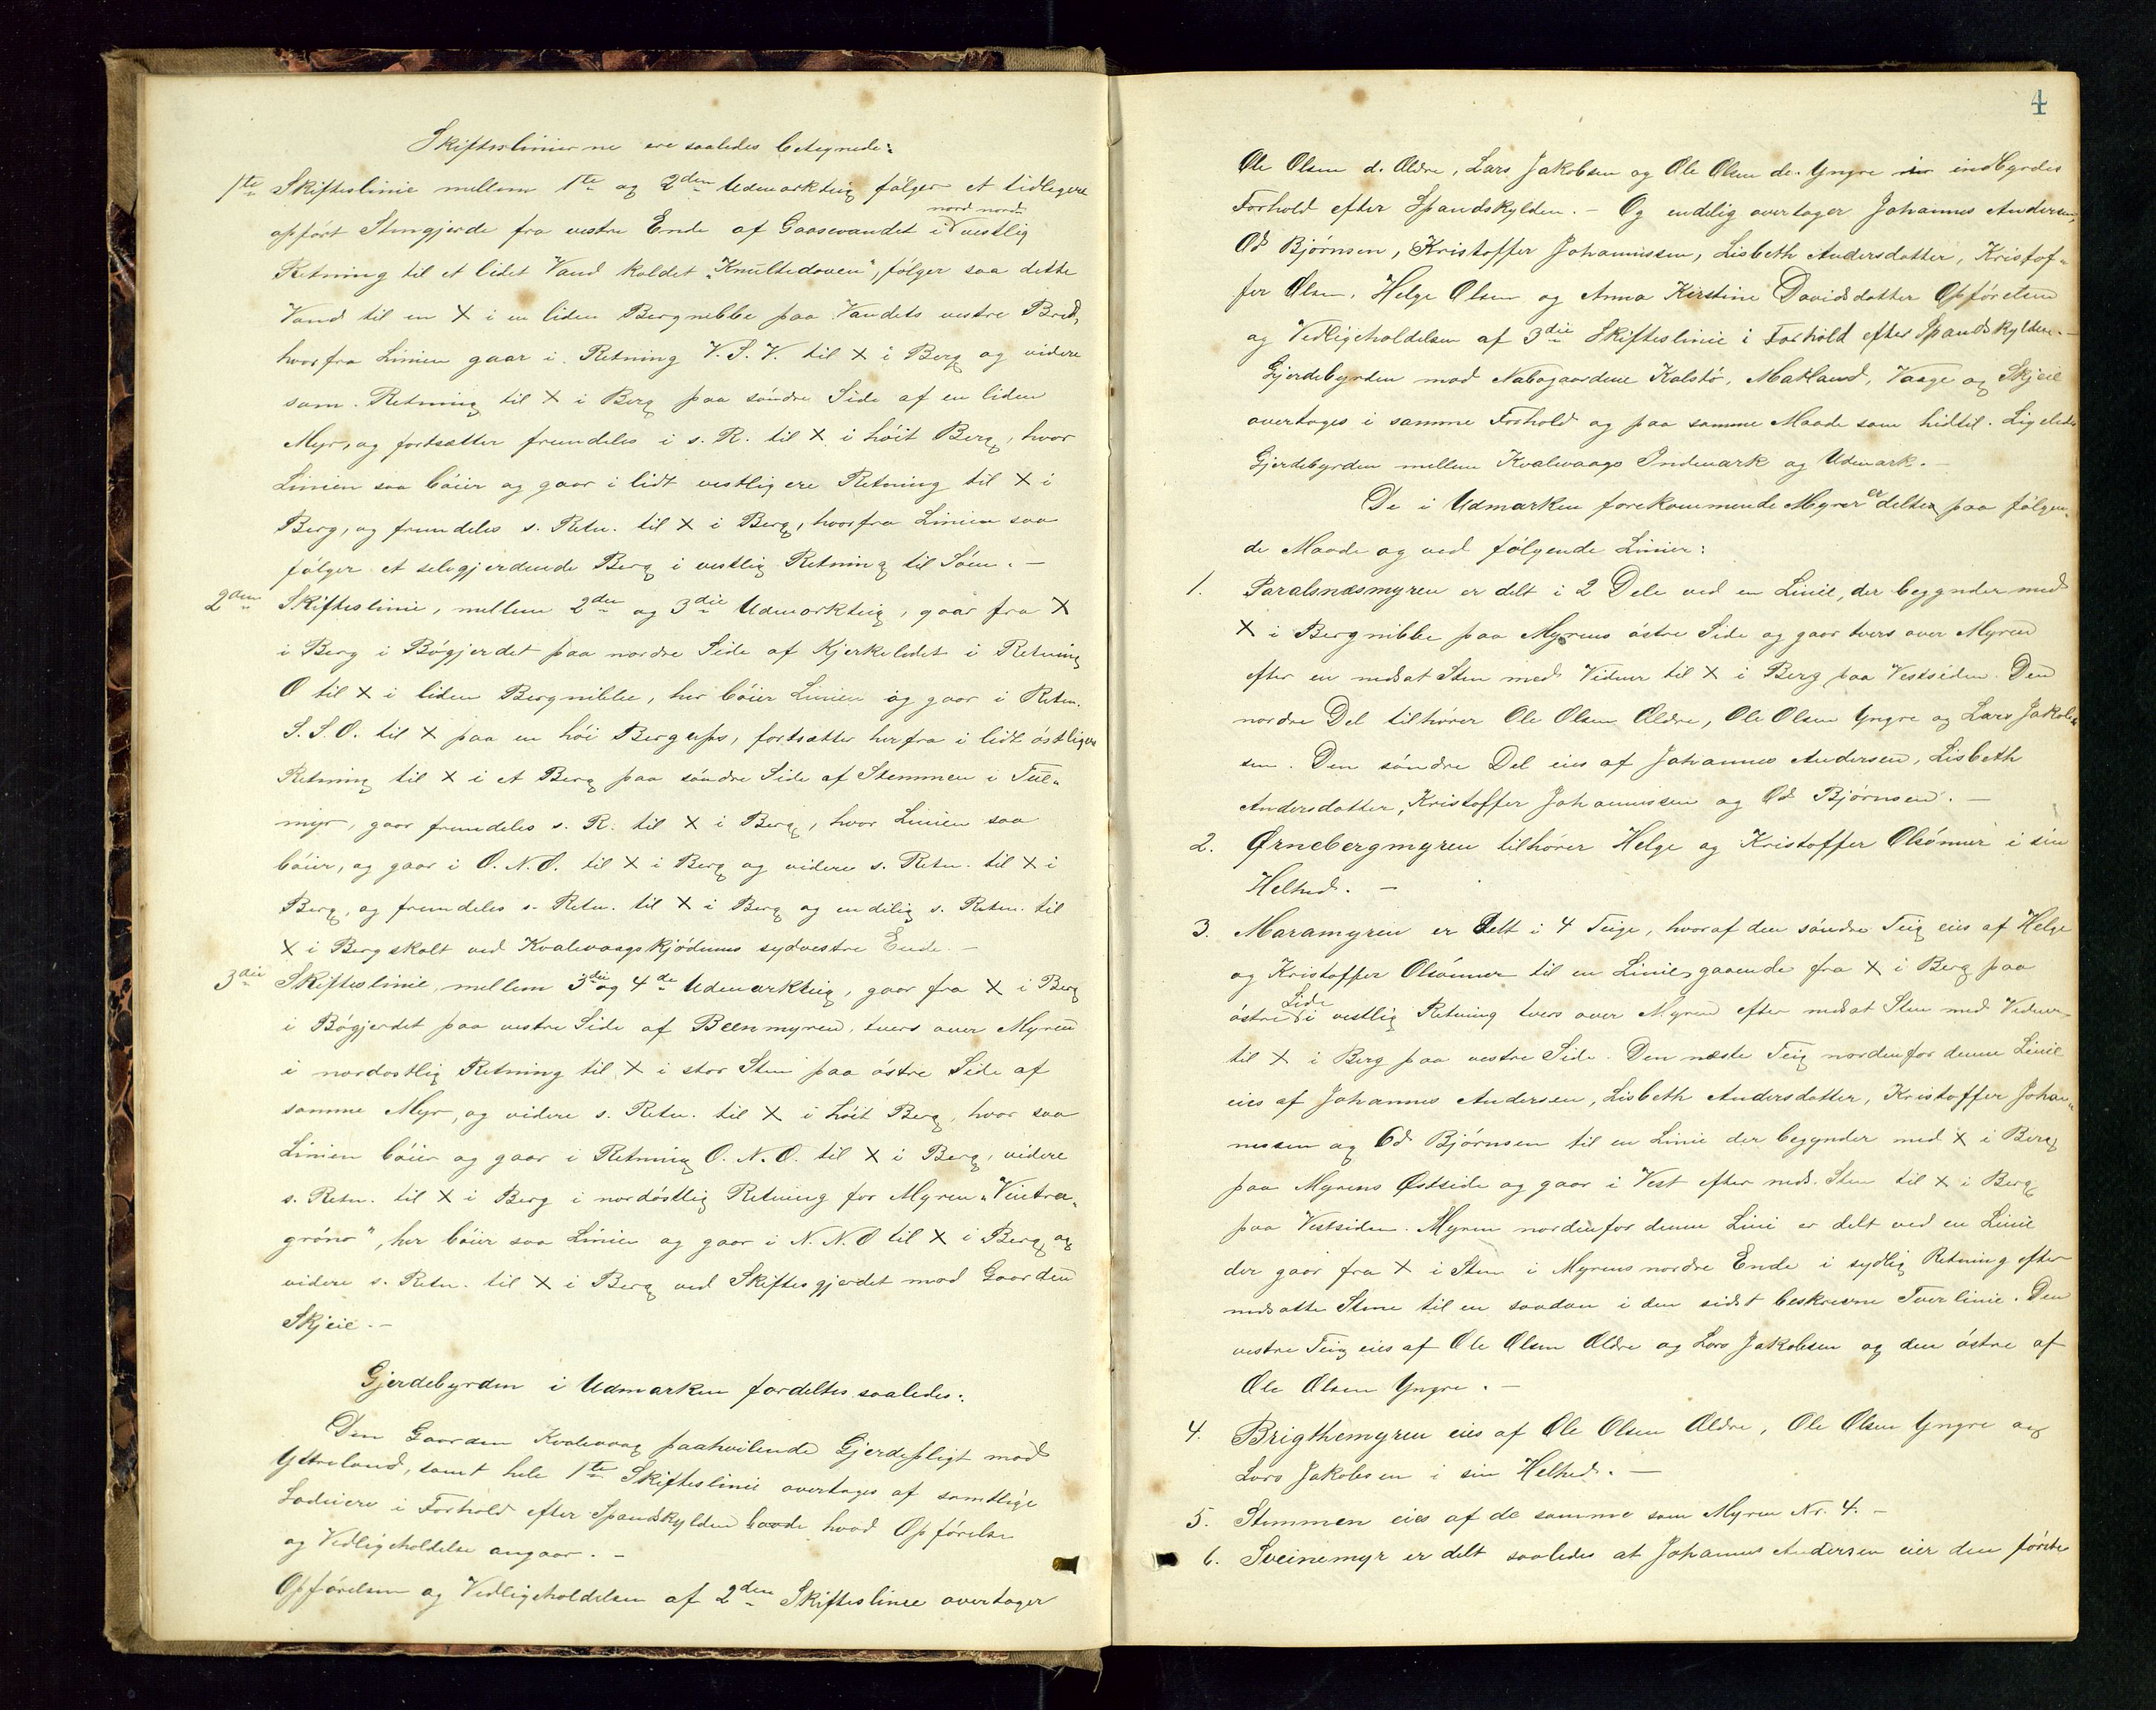 Skifteslinierne ere saaledes betegnede:
1ste Skifteslinie mellem 1ste og 2den Udmarkteig følger et tidligere
opført Stengjerde fra vestre Ende af Gaasevandet i nord nord vestlig
Retning til et lidet Vand kaldet "Knultedoven", følger saa dette
Vand til en X i en liden Bergnibbe paa Vandets vestre Bred,
hvorfra Linien gaar i Retning V.S.V. til X i Berg og videre
sam. Retning til X i Berg paa søndre Side af en liden
Myr, og fortsætter fremdeles i s. R. til X i høit Berg, hvor
Linien saa bøier og gaar i lidt vestligere Retning til X i
Berg, og fremdeles s. Retn. til X i Berg, hvorfra Linien saa
følger et selvgjerdende Berg i vestlig Retning til Søen. —
2den Skifteslinie, mellem 2den og 3die Udmarkteig, gaar fra X
i Berg i Bøgjerdet paa nordre Side af Kjerkeledet i Retning
O til X i liden Bergnibbe, her bøier Linien og gaar i Retn.
S.S.O. til X paa en høi Berg, fortsætter herfra i lidt østligere
Retning til X i et Berg paa søndre Side af Stemmen i
myr, gaar fremdeles s. R. til X i Berg, hvor Linien saa
bøier, og gaar i O.N.O. til X i Berg og videre s. Retn. til X i
Berg, og fremdeles s. Retn. til X i Berg og endelig s. Retn. til
X i Bergskolt ved Kvalevaagskjødnens sydvestre Ende. —
3die Skifteslinie, mellem 3die og 4de Udmarkteig, gaar fra X i Berg
i Bøgjerdet paa vestre Side af Beenmyren, tvers over Myren
i nordostlig Retning til X i stor Sten paa østre Side af
samme Myr, og videre s. Retn. til X i høit Berg, hvor saa
Linien bøier og gaar i Retning O.N.O. til X i Berg, videre
s. Retn. til X i Berg i nordøstlig Retning for Myren "Vintra-
grøno", her bøier saa Linien og gaar i N.N.O til X i Berg og
videre s. Retn. til X i Berg ved Skiftesgjerdet mod Gaarden
Skjeie. —
Gjerdebyrden i Udmarken fordeltes saaledes:
Den Gaarden Kvalevaag paahvilende Gjerdepligt mod
Ytreland, samt hele 1ste Skifteslinie overtages af samtlige
Lodeiere i Forhold efter Spandskylden baade hvad Opførelse
og Vedligeholdelse angaar. —
Opførelsen og Vedligeholdelsen af 2den Skifteslinie overtager
4
Ole Olsen d. Ældre, Lars Jakobsen og Ole Olsen de. Yngre indbyrdes
Forhold efter Spandskylden. — Og endelig overtager Johannes Andersen,
Od Bjørnsen, Kristoffer Johannissen, Lisbeth Andersdatter, Kristof-
fer Olsen, Helge Olsen og Anna Kirstine Davidsdatter Opførelsen
og Vedligeholdelsen af 3die Skifteslinie i Forhold efter Spandskylden. —
Gjerdebyrden mod Nabogaardene Kalstø, Matland, Vaage og Skjeie
overtages i samme Forhold og paa samme Maade som hidtil. Ligeledes
Gjerdebyrden mellem Kvalevaags Indmark og Udmark. —
De i Udmarken forekommende Myrer er delte paa følgen-
de Maade og ved følgende Linier:
1. Paralsnæsmyren er delt i 2 Dele ved en Linie, der begynder med
X i Bergnibbe paa Myrens østre Side og gaar tvers over Myren
efter en nedsat Sten med Vidner til X i Berg paa Vestsiden. Den
nordre Del tilhører Ole Olsen Ældre, Ole Olsen Yngre og Lars Jakob-
sen. Den søndre Del eies af Johannes Andersen, Lisbeth
Andersdatter, Kristoffer Johannissen og Od Bjørnsen. —
2. Ørnebergmyren tilhører Helge og Kristoffer Olsønner i sin
Helhed. —
3. Maramyren er delt i 4 Teige, hvoraf den søndre Teig eies af Helge
og Kristoffer Olsønner til en Linie, gaaende fra X i Berg paa
østre Side i vestlig Retning tvers over Myren efter nedsat Sten med Vidner
til X i Berg paa vestre Side. Den næste Teig nordenfor denne Linie
eies af Johannes Andersen, Lisbeth Andersdatter, Kristoffer Johan-
nessen og Od Bjørnsen til en Linie der begynder med X i Berg
paa Myrens Østside og gaar i Vest efter neds. Sten til X i Berg
paa Vestsiden. Myren nordenfor denne Lini er delt ved en Linie
der gaar fra X i Sten i Myrens nordre Ende i sydlig Retning efter
nedsatte Stene til en saadan i den sidst beskrevne Tverlinie. Den
vestre Teig eies af Ole Olsen Ældre og Lars Jakobsen og den østre af
Ole Olsen Yngre. —
4. Brigthemyren eies af Ole Olsen Ældre, Ole Olsen Yngre og
Lars Jakobsen i sin Helhed. —
5. Stemmen eies af de samme som Myren Nr. 4. —
6. Sveinemyr er delt saaledes at Johannes Andersen eier den første